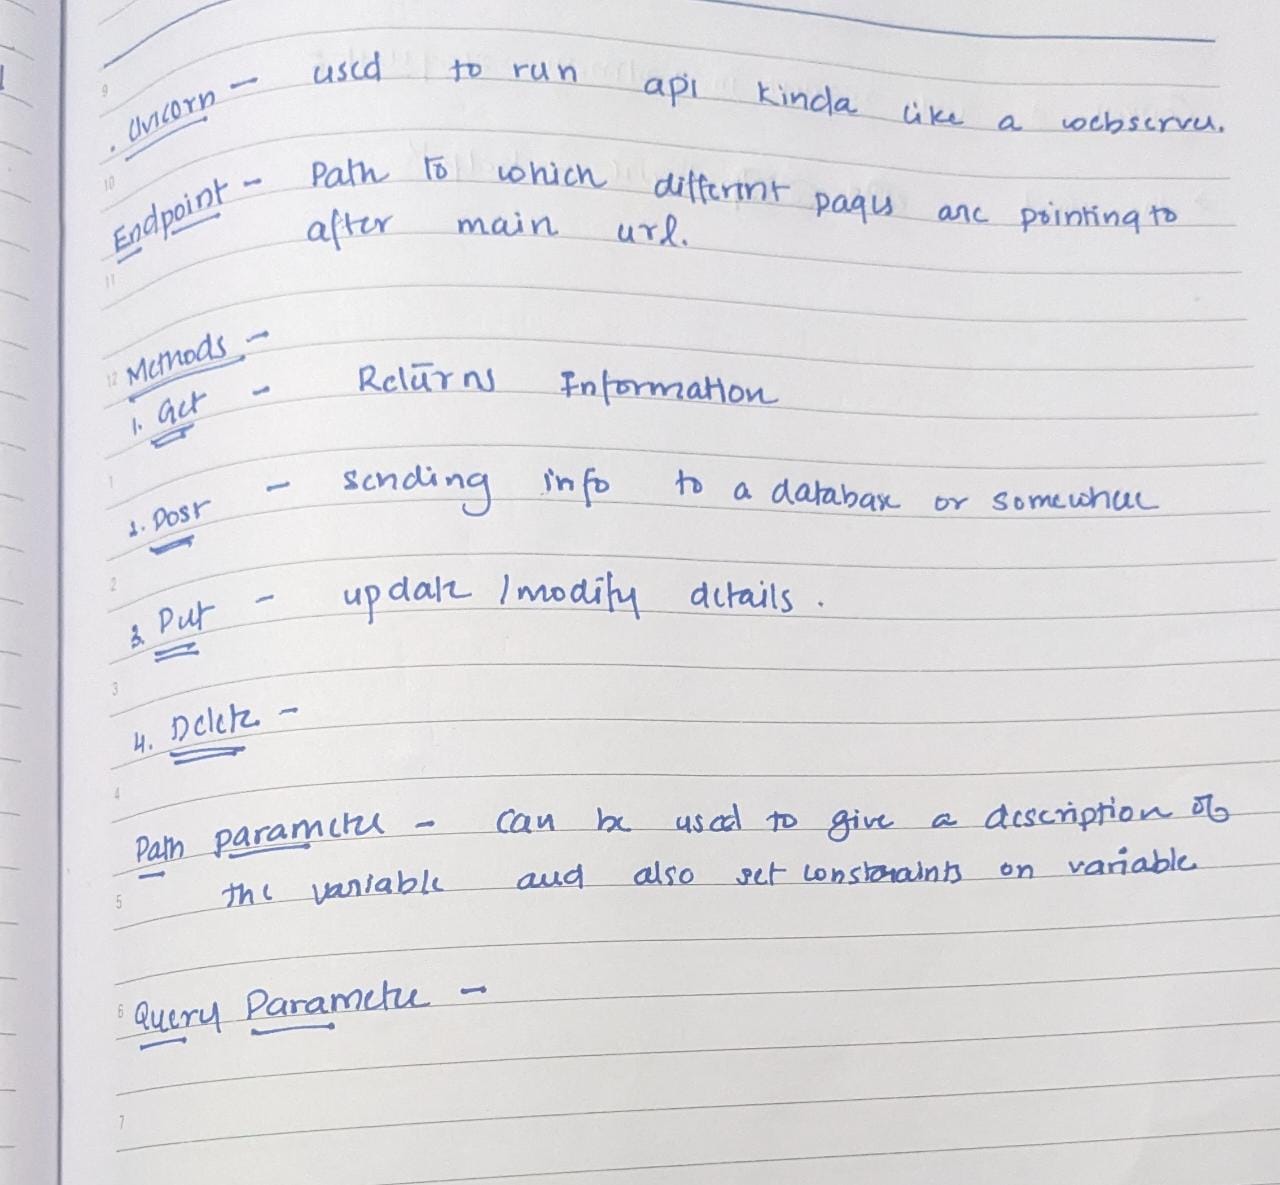 . Uvicorn - used to run api kinda like a webserver.
Endpoint - Path to which different pages are pointing to
after main url.
Methods -
1. Get - Returns Information
2. Post - sending info to a database or somewhere
3. Put - update / modify details.
4. Delete -
Path parameter - can be used to give a description of
the variable and also set constraints on variable
Query Parameter -
9
10
11
12
1
2
3
4
5
6
7